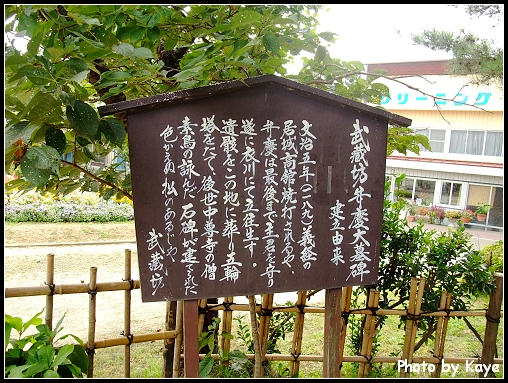 武蔵坊弁慶大墓碑
建立由来
文治五年(一一八九)義経の
居城高館焼打されるや、
弁慶は最後まで主君を守り
遂に衣川にて立往生す、
遺骸をこの地に葬り五輪
塔を建て、後世中尊寺の僧
素鳥の詠んだ石碑が建てられた
色かえぬ松のあるじや
武蔵坊
クリーニング
Photo by Kaye